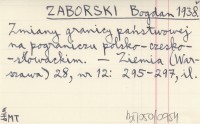 ZABORSKI Bogdan 1938.
Zmiany granicy państwowej
na pograniczu polsko-czesko-
-słowackim. — Ziemia (War-
szawa) 28, nr 12: 295-297, il.
MT